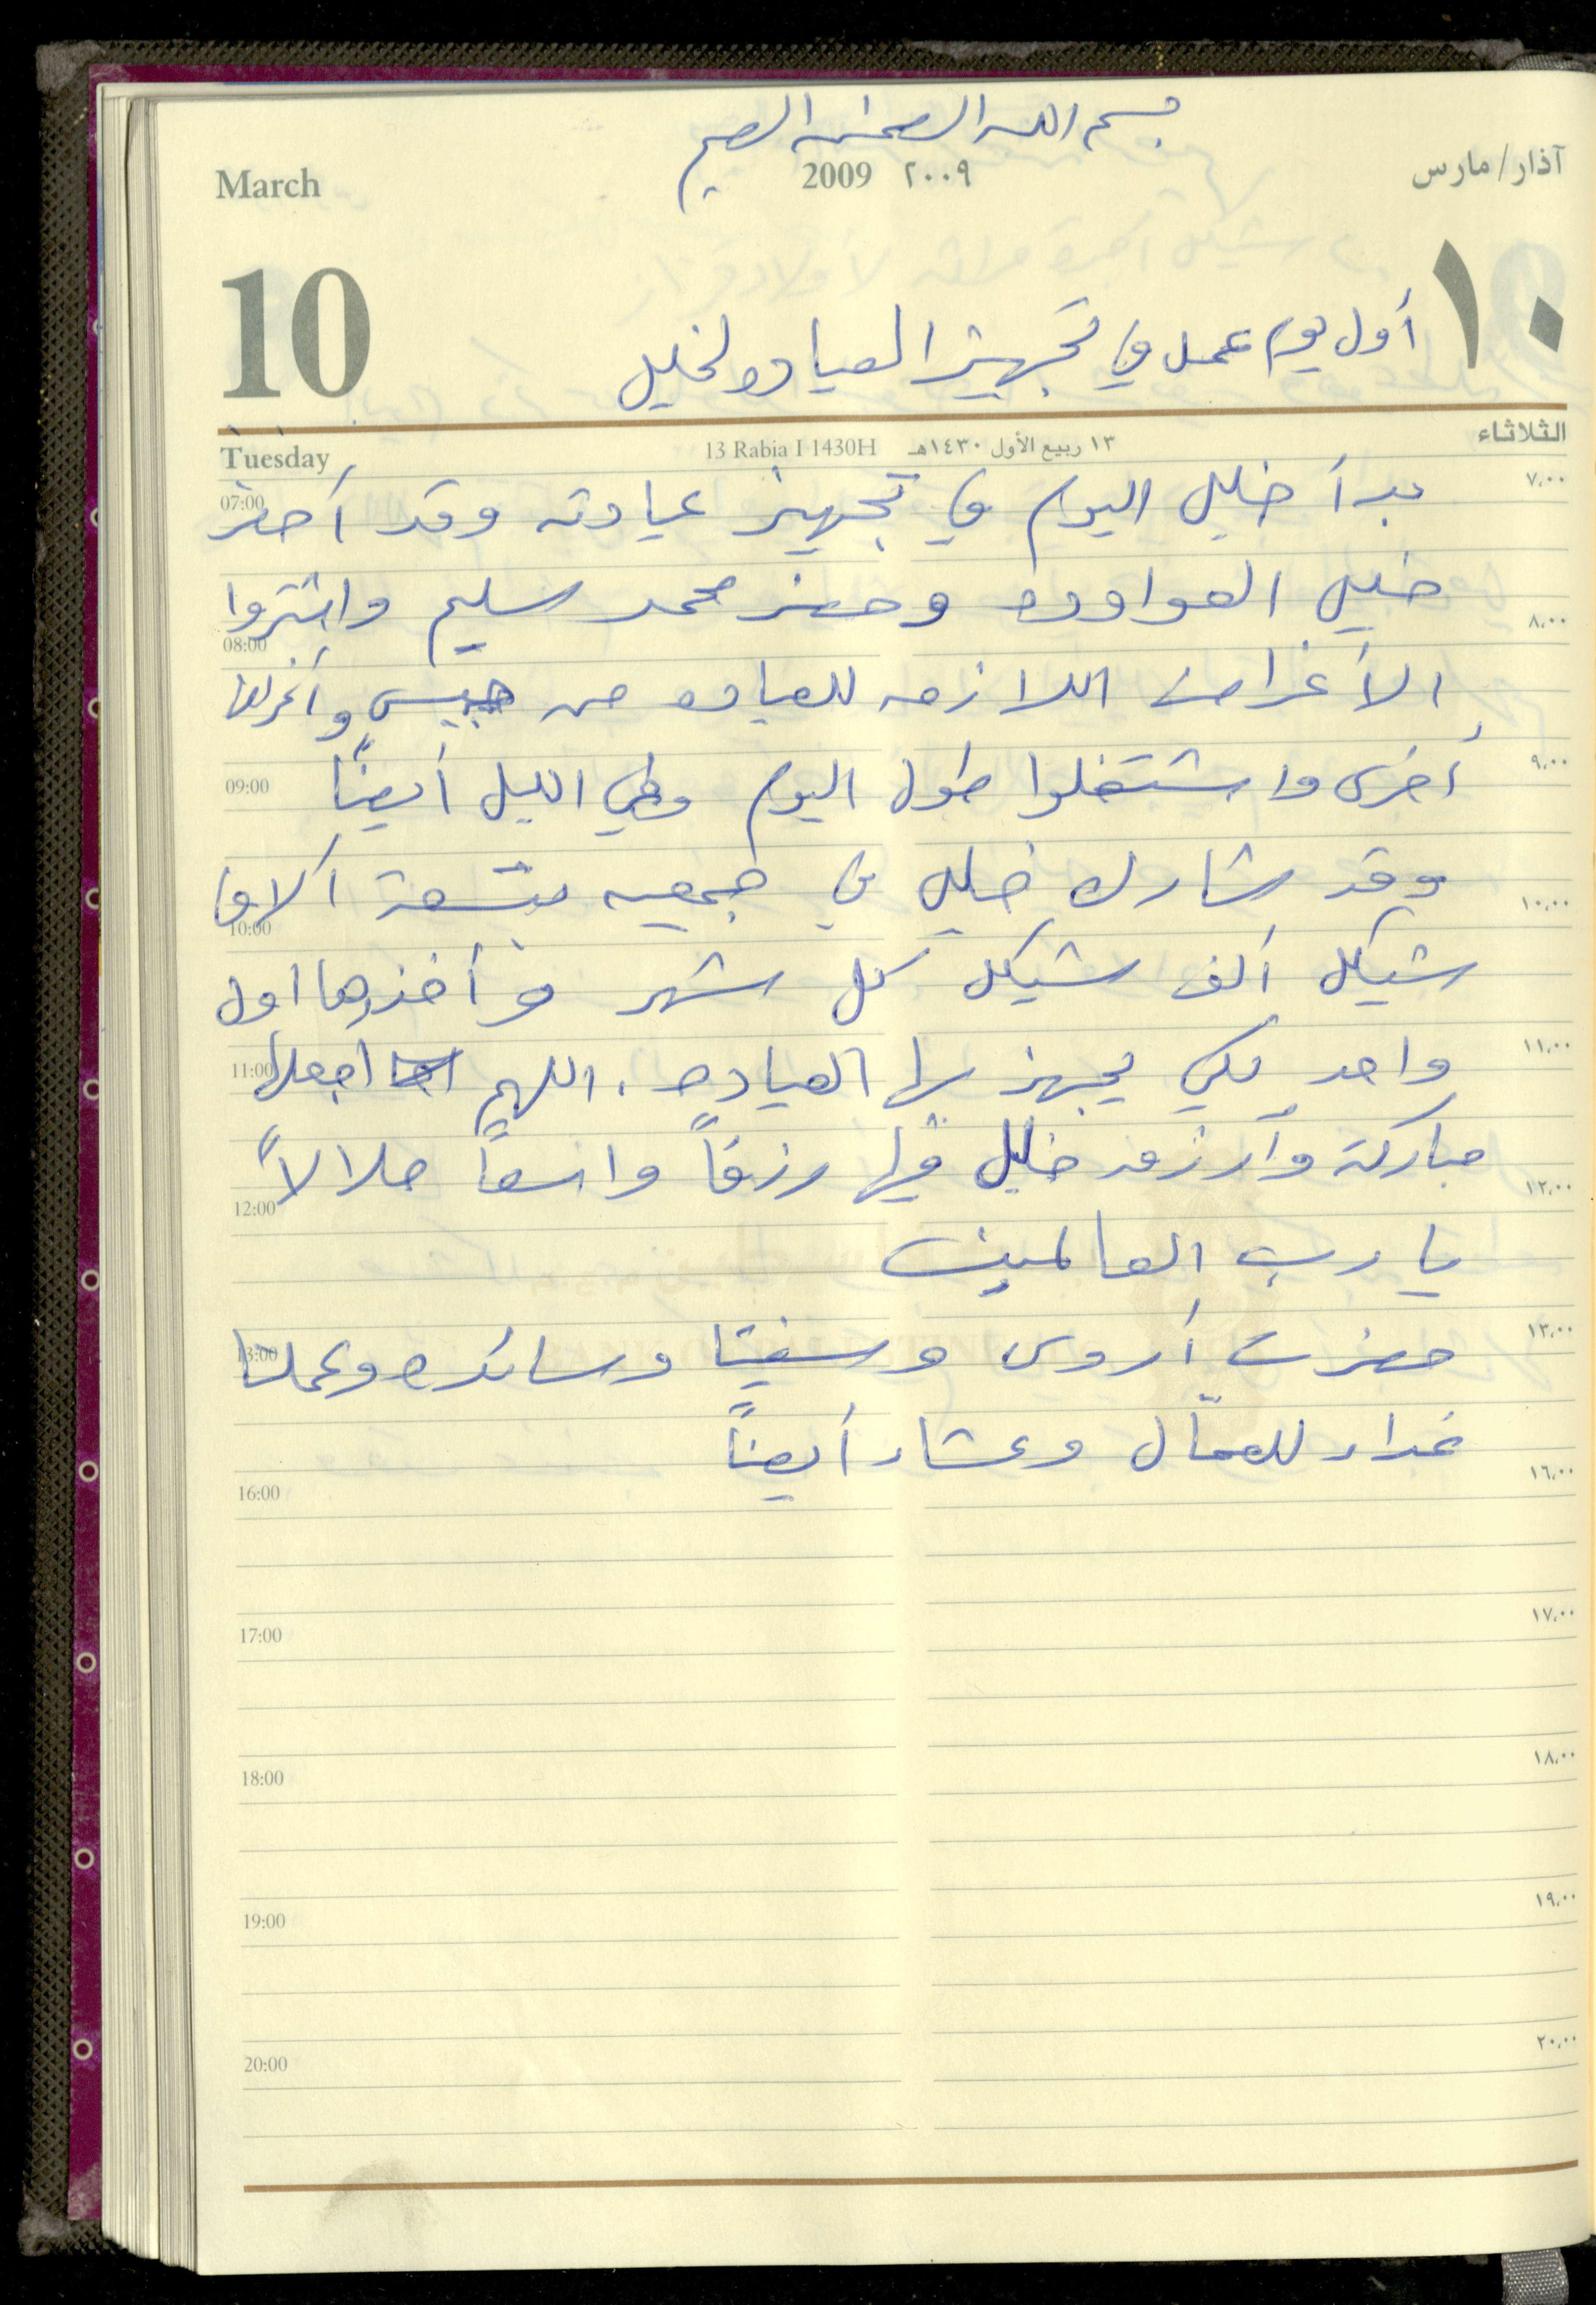 بسم الله الرحمن الرحيم
March 2009 ٢٠٠٩ آذار/مارس
10 ١٠
أول يوم عمل في تجهيز العياده لخليل
Tuesday 13 Rabia I 1430H ١٣ ربيع الأول ١٤٣٠هـ الثلاثاء
07:00 ٧,٠٠
بدأ خليل اليوم في تجهيز عيادته وقد أحضر
خليل العواوده وحضر محمد سليم واشتروا
08:00 ٨,٠٠
الأغراض اللازمه للعياده من
أخرى واشتغلوا طول اليوم وفي الليل أيضاً
09:00 ٩,٠٠
وقد شارك خليل في جمعيه بتسعة آلاف
10:00 ١٠,٠٠
شيكل ألف شيكل كل شهر وأخذها اول
واحد لكي يجهز بها العياده. اللهم اجعلها
11:00 ١١,٠٠
مباركة وأرزق خليل فيها رزقاً واسعاً حلالاً
12:00 ١٢,٠٠
يا رب العالمين
حضرت أروى وسفيتا وسائده وعملنا
13:00 ١٣,٠٠
غداء للعمّال وعشاء أيضاً
16:00 ١٦,٠٠
17:00 ١٧,٠٠
18:00 ١٨,٠٠
19:00 ١٩,٠٠
20:00 ٢٠,٠٠